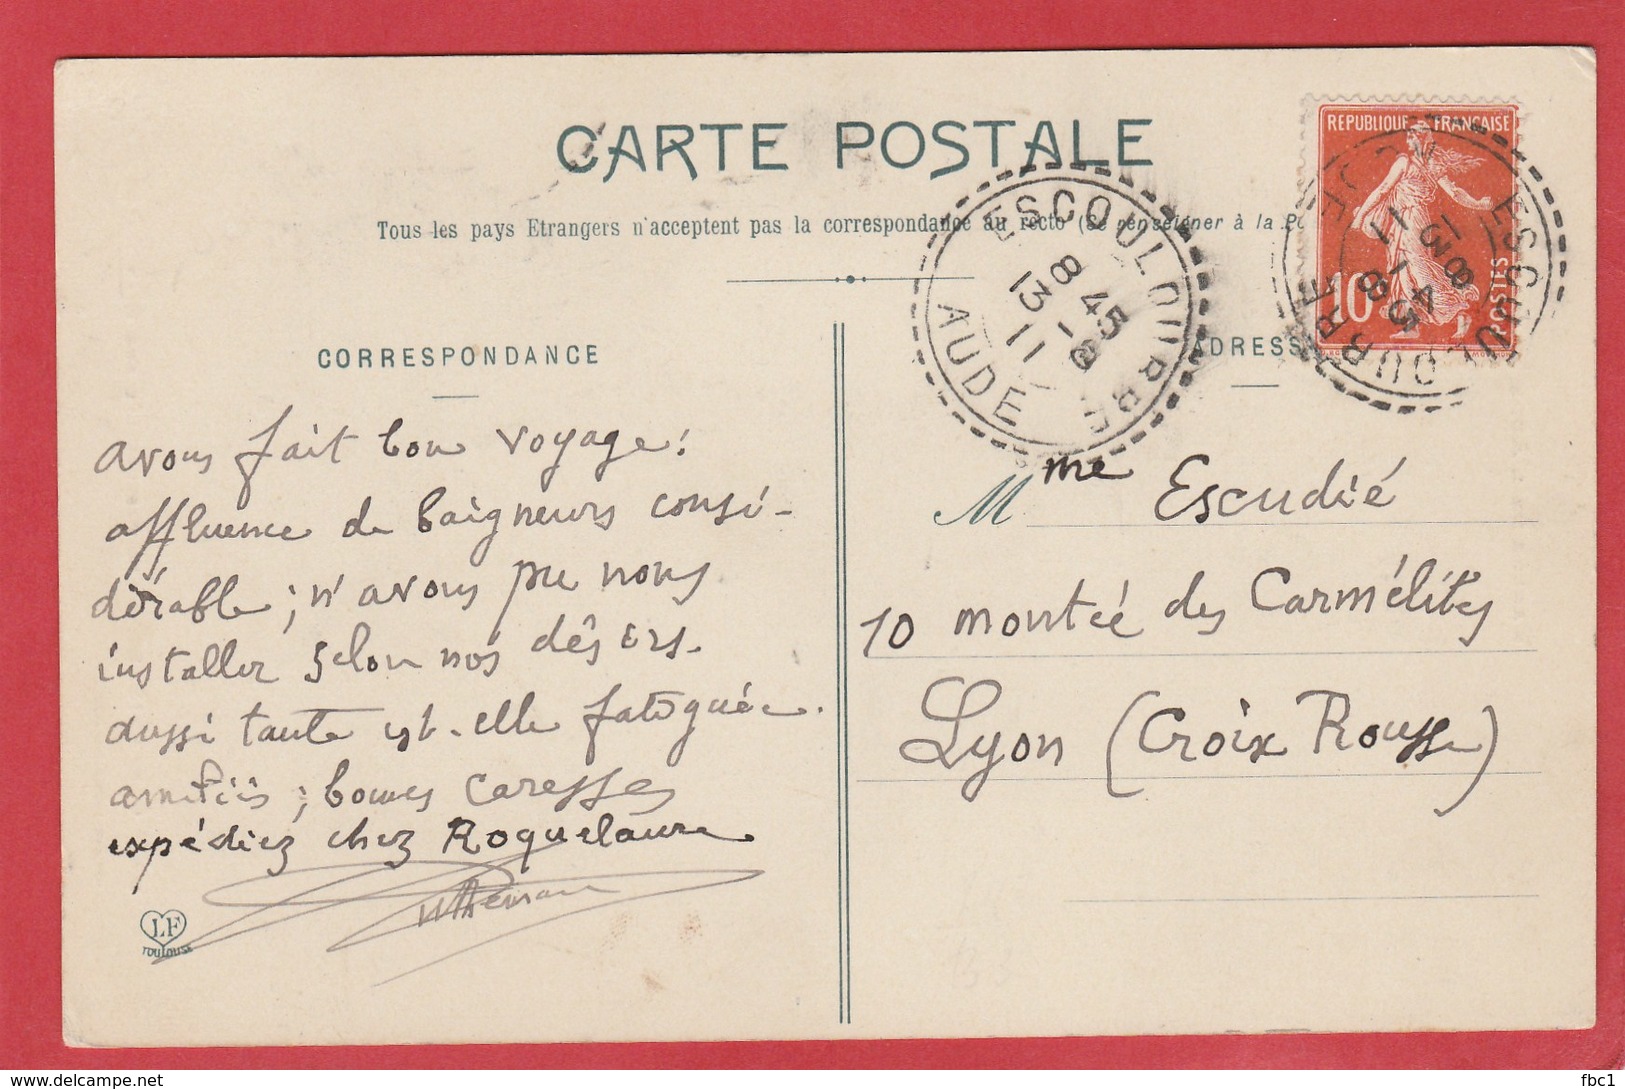 CARTE POSTALE
Tous les pays Etrangers n'acceptent pas la correspondance au recto (Se renseigner à la Po
CORRESPONDANCE
avons fait bon voyage;
affluence de baigneurs consi-
dérable; n'avons pu nous
installer selon nos désirs.
aussi tante est-elle fatiguée.
amitiés; bonnes caresses
expédiez chez Roquelaure
LF
TOULOUSE
ESCOULOUBRE
8 45
13 - 8
11
AUDE
ADRESS
REPUBLIQUE FRANÇAISE
10
POSTES
ESCOULOUBRE
8 45
13 - 8
11
Mme Escudié
10 montée des Carmélites
Lyon (Croix Rousse)
delcampe.net
fbc1